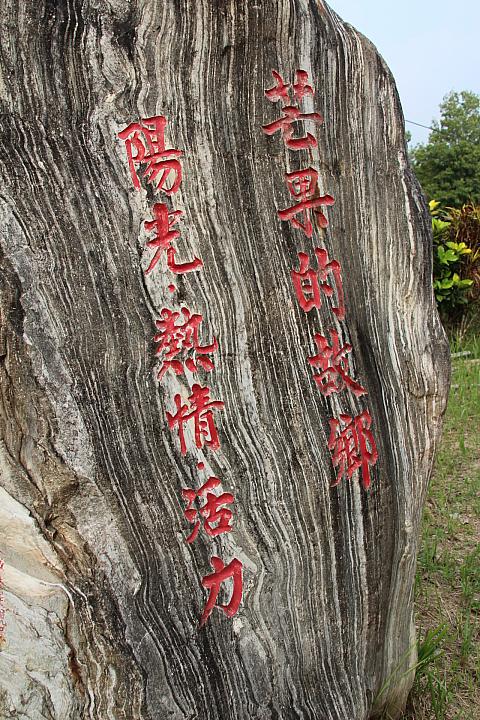 芒果的故鄉
陽光·熱情·活力